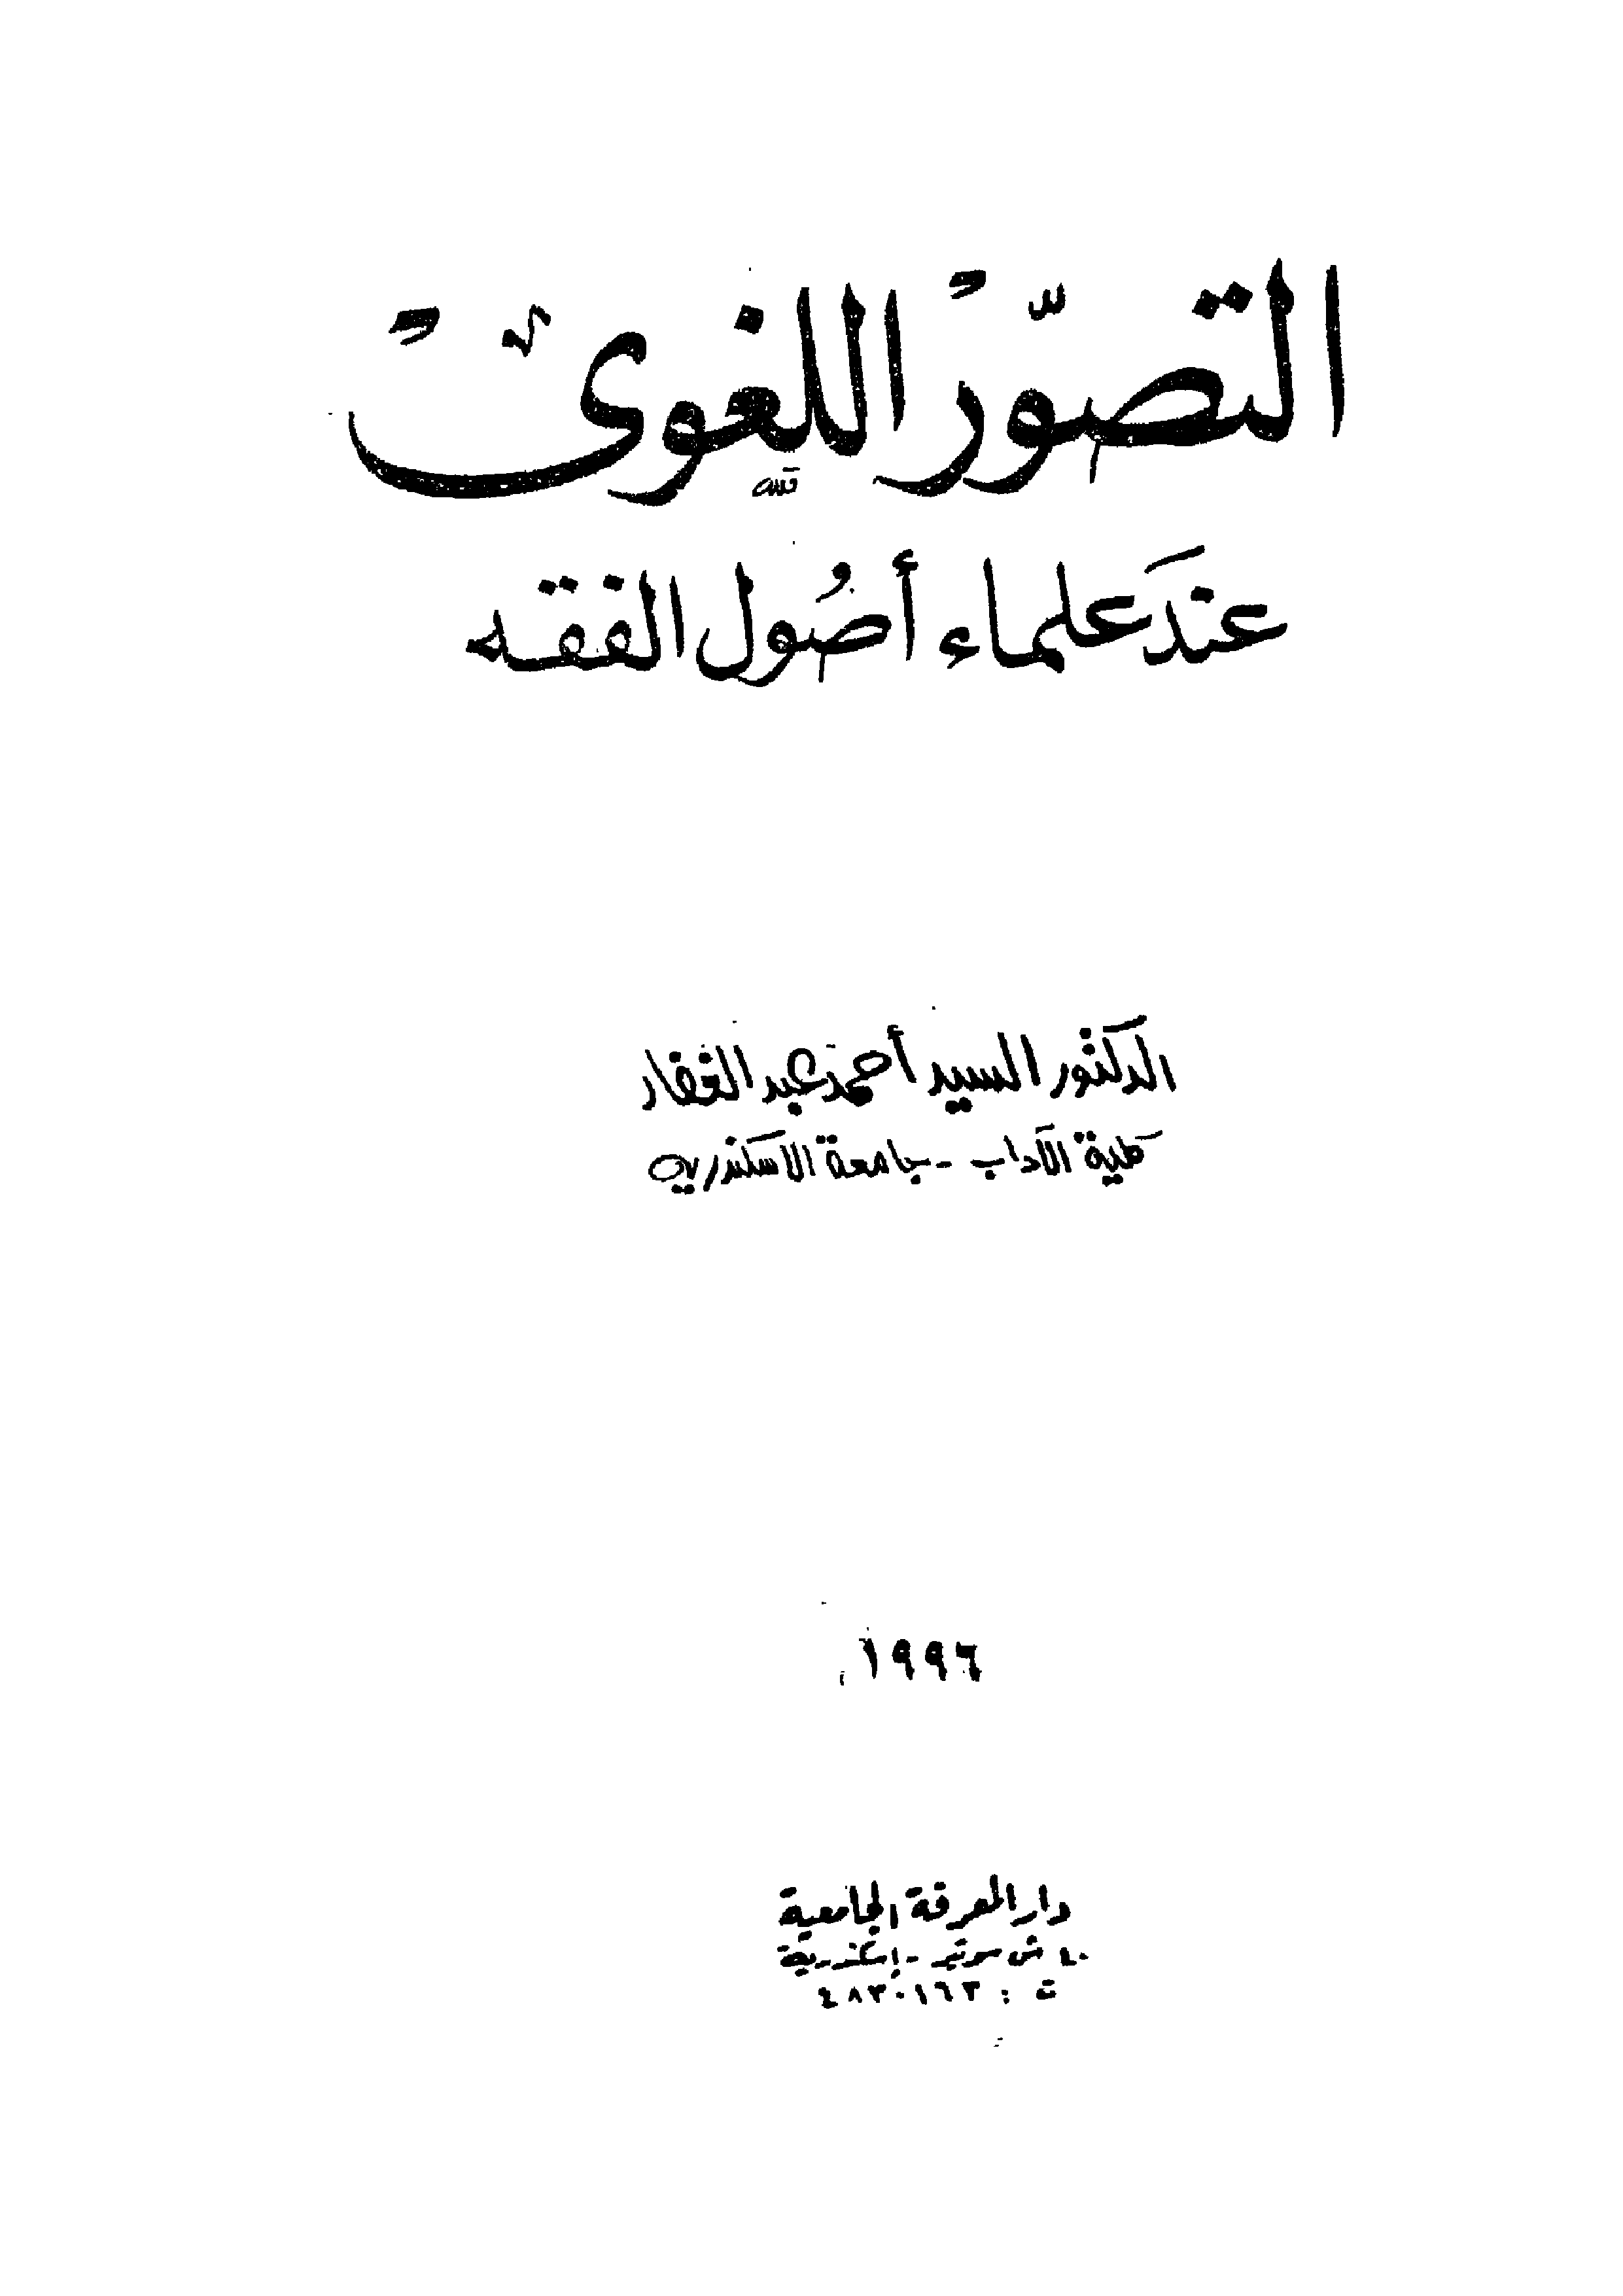 التصوّر اللغوى
عندَ علماء أصُول الفقه
الدكتور السيد أحمد عبد الغفار
كلية الآداب - جامعة الاسكندرية
١٩٩٦
دار المعرفة الجامعية
٤٠ ش سوتير - إسكندرية
ت : ٤٨٣٠١٦٣